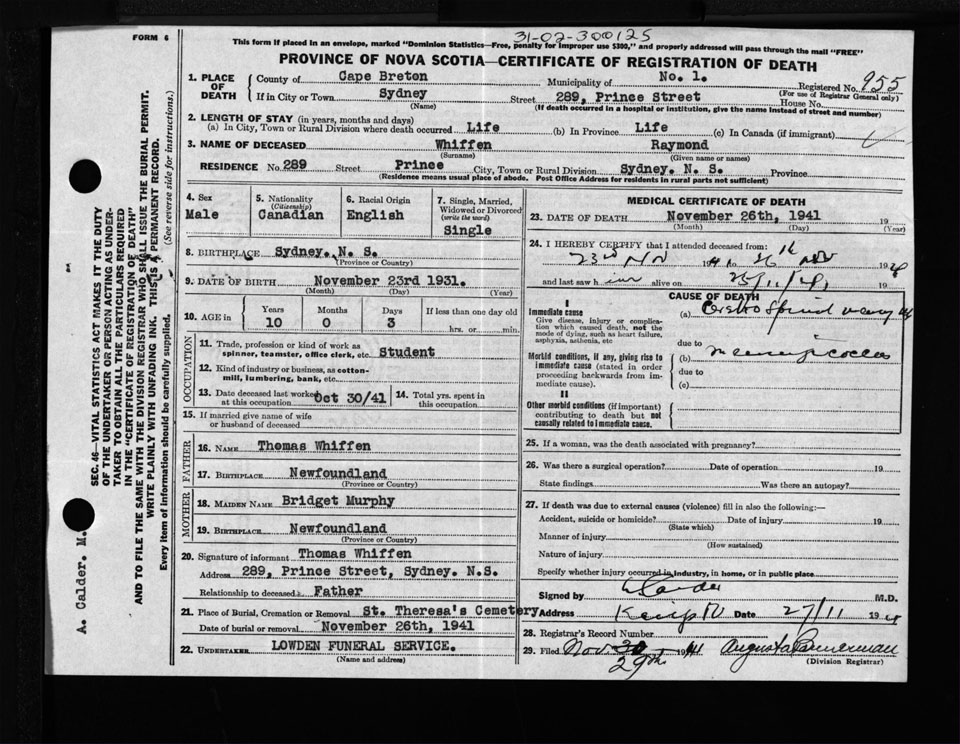 31-02-300125
FORM 6
This form if placed in an envelope, marked "Dominion Statistics—Free, penalty for improper use $300," and properly addressed will pass through the mail "FREE"
PROVINCE OF NOVA SCOTIA—CERTIFICATE OF REGISTRATION OF DEATH
1. PLACE OF DEATH
County of Cape Breton Municipality of No. 1. Registered No. 955
(For use of Registrar General only)
If in City or Town Sydney Street 289, Prince Street House No.
(Name) (If death occurred in a hospital or institution, give the name instead of street and number)
2. LENGTH OF STAY (in years, months and days)
(a) In City, Town or Rural Division where death occurred Life (b) In Province Life (c) In Canada (if immigrant)
3. NAME OF DECEASED Whiffen Raymond
(Surname) (Given name or names)
RESIDENCE No. 289 Street Prince City, Town or Rural Division Sydney. N. S. Province
(Residence means usual place of abode. Post Office Address for residents in rural parts not sufficient)
4. Sex
Male
5. Nationality
(Citizenship)
Canadian
6. Racial Origin
English
7. Single, Married, Widowed or Divorced
(write the word)
Single
8. BIRTHPLACE Sydney. N. S.
(Province or Country)
9. DATE OF BIRTH November 23rd 1931.
(Month) (Day) (Year)
10. AGE in
Years Months Days If less than one day old
10 0 3 hrs. or min.
OCCUPATION
11. Trade, profession or kind of work as
spinner, teamster, office clerk, etc. Student
12. Kind of industry or business, as cotton-
mill, lumbering, bank, etc.
13. Date deceased last worked at this occupation Oct 30/41
14. Total yrs. spent in this occupation
15. If married give name of wife
or husband of deceased
FATHER
16. NAME Thomas Whiffen
17. BIRTHPLACE Newfoundland
(Province or Country)
MOTHER
18. MAIDEN NAME Bridget Murphy
19. BIRTHPLACE Newfoundland
(Province or Country)
20. Signature of informant Thomas Whiffen
Address 289, Prince Street, Sydney. N.S.
Relationship to deceased Father
21. Place of Burial, Cremation or Removal St. Theresa's Cemetery
Date of burial or removal November 26th, 1941
22. UNDERTAKER LOWDEN FUNERAL SERVICE.
(Name and address)
MEDICAL CERTIFICATE OF DEATH
23. DATE OF DEATH November 26th, 1941 19
(Month) (Day) (Year)
24. I HEREBY CERTIFY that I attended deceased from:
23rd Nov 1941 to 26th Nov 19
and last saw h im alive on 25/11/41 19
CAUSE OF DEATH
I
Immediate cause
Give disease, injury or complication which caused death, not the mode of dying, such as heart failure, asphyxia, asthenia, etc
(a) Cerebro Spinal
Morbid conditions, if any, giving rise to immediate cause (stated in order proceeding backwards from immediate cause).
due to
(b)
due to
(c)
II
Other morbid conditions (if important) contributing to death but not causally related to immediate cause.
25. If a woman, was the death associated with pregnancy?
26. Was there a surgical operation? Date of operation 19
State findings Was there an autopsy?
27. If death was due to external causes (violence) fill in also the following:—
Accident, suicide or homicide? Date of injury 19
(State which)
Manner of injury
(How sustained)
Nature of injury
Specify whether injury occurred in industry, in home, or in public place
Signed by Calder M.D.
Address Date 27/11 19
28. Registrar's Record Number
29. Filed Nov. 29th 1941 Augusta Bannerman
(Division Registrar)
SEC. 46—VITAL STATISTICS ACT MAKES IT THE DUTY
OF THE UNDERTAKER OR PERSON ACTING AS UNDER-
TAKER TO OBTAIN ALL THE PARTICULARS REQUIRED
IN THE "CERTIFICATE OF REGISTRATION OF DEATH"
AND TO FILE THE SAME WITH THE DIVISION REGISTRAR WHO SHALL ISSUE THE BURIAL PERMIT.
WRITE PLAINLY WITH UNFADING INK. THIS IS A PERMANENT RECORD.
Every item of information should be carefully supplied. (See reverse side for instructions.)
A. Calder. M.